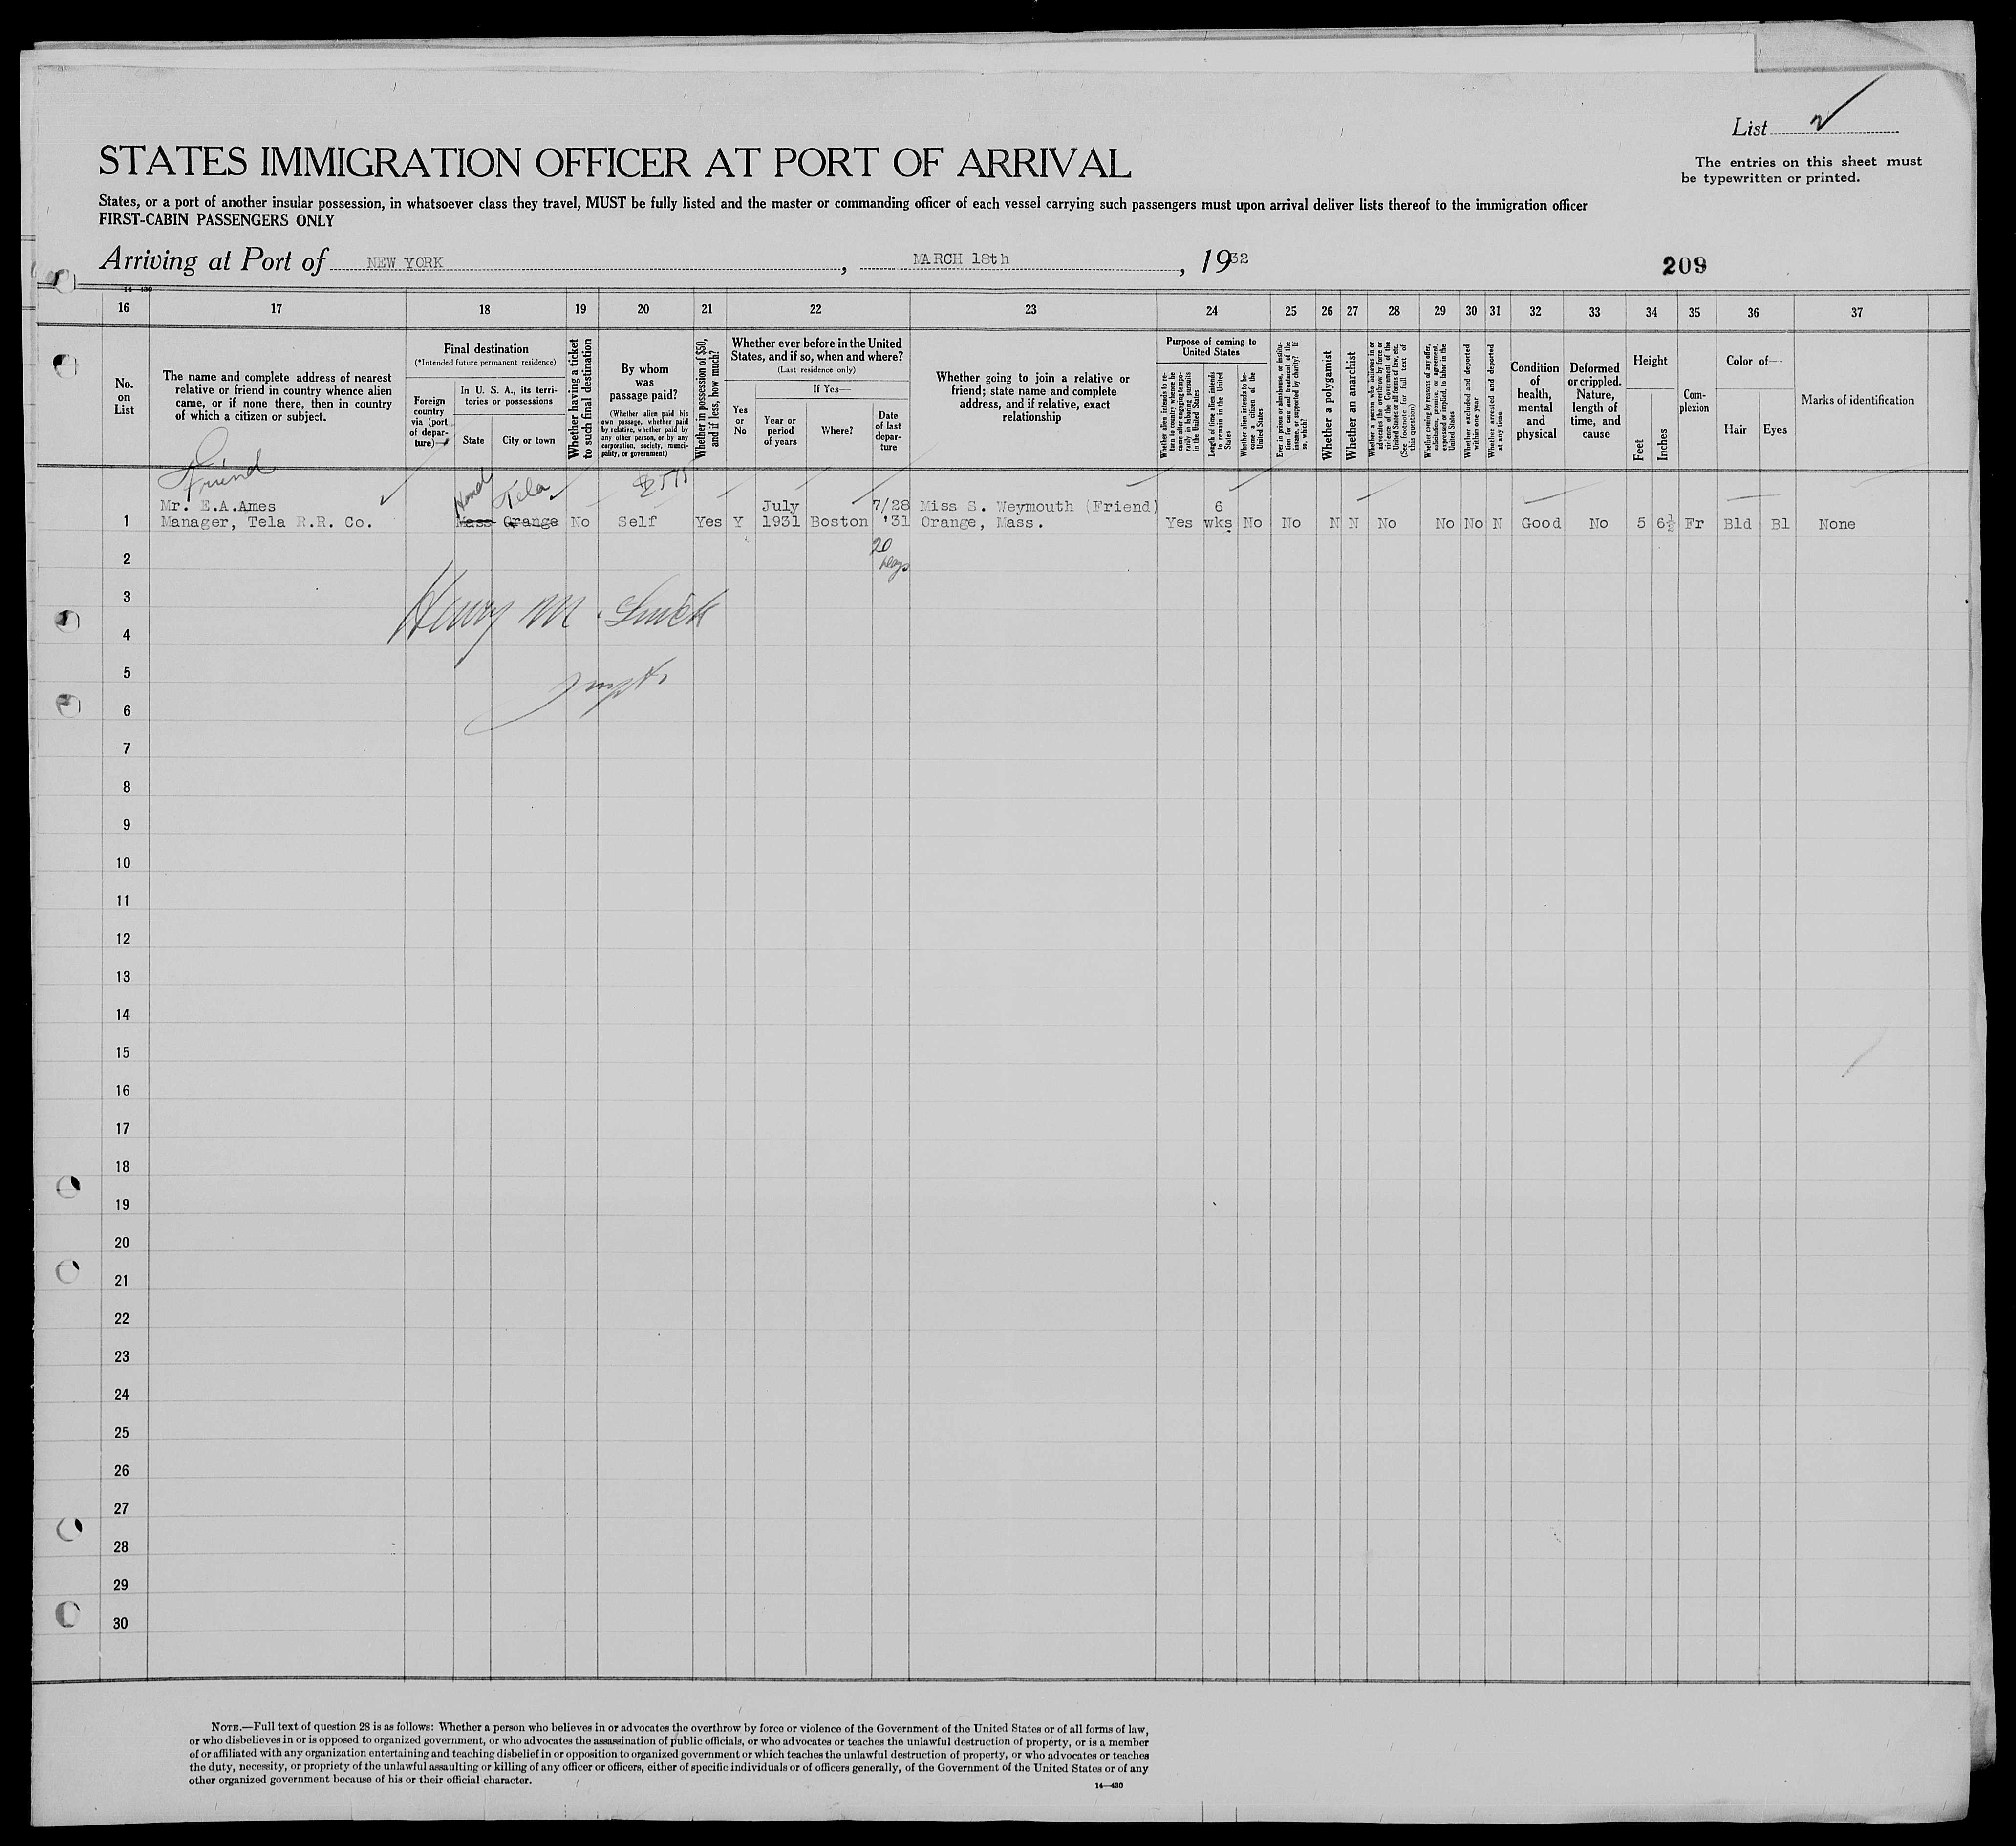 List 2
The entries on this sheet must
be typewritten or printed.
STATES IMMIGRATION OFFICER AT PORT OF ARRIVAL
States, or a port of another insular possession, in whatsoever class they travel, MUST be fully listed and the master or commanding officer of each vessel carrying such passengers must upon arrival deliver lists thereof to the immigration officer
FIRST-CABIN PASSENGERS ONLY
Arriving at Port of NEW YORK, MARCH 18th, 1932
209
14—430
16 17 18 19 20 21 22 23 24 25 26 27 28 29 30 31 32 33 34 35 36 37
No. on List
The name and complete address of nearest relative or friend in country whence alien came, or if none there, then in country of which a citizen or subject.
Final destination
(*Intended future permanent residence)
Foreign country via (port of departure)—
In U. S. A., its territories or possessions
State
City or town
Whether having a ticket to such final destination
By whom was passage paid?
(Whether alien paid his own passage, whether paid by relative, whether paid by any other person, or by any corporation, society, municipality, or government)
Whether in possession of $50, and if less, how much?
Whether ever before in the United States, and if so, when and where?
(Last residence only)
Yes or No
If Yes—
Year or period of years
Where?
Date of last departure
Whether going to join a relative or friend; state name and complete address, and if relative, exact relationship
Purpose of coming to United States
Whether alien intends to return to country whence he came after engaging temporarily in laboring pursuits in the United States
Length of time alien intends to remain in the United States
Whether alien intends to become a citizen of the United States
Ever in prison or almshouse, or institution for care and treatment of the insane, or supported by charity? If so, which?
Whether a polygamist
Whether an anarchist
Whether a person who believes in or advocates the overthrow by force or violence of the Government of the United States or all forms of law, etc. (See footnote for full text of this question)
Whether coming by reasons of any offer, solicitation, promise, or agreement, expressed or implied, to labor in the United States
Whether excluded and deported within one year
Whether arrested and deported at any time
Condition of health, mental and physical
Deformed or crippled. Nature, length of time, and cause
Height
Feet
Inches
Complexion
Color of—
Hair
Eyes
Marks of identification
Friend
Hond Tela
Mr. E.A.Ames July 7/28 Miss S. Weymouth (Friend) 6
1 Manager, Tela R.R. Co. Mass Orange No Self Yes Y 1931 Boston '31 Orange, Mass. Yes wks No No N N No No No N Good No 5 6½ Fr Bld Bl None
20
days
2
3
Henry M. Smith
4
5
6
7
8
9
10
11
12
13
14
15
16
17
18
19
20
21
22
23
24
25
26
27
28
29
30
NOTE.—Full text of question 28 is as follows: Whether a person who believes in or advocates the overthrow by force or violence of the Government of the United States or of all forms of law,
or who disbelieves in or is opposed to organized government, or who advocates the assassination of public officials, or who advocates or teaches the unlawful destruction of property, or is a member
of or affiliated with any organization entertaining and teaching disbelief in or opposition to organized government or which teaches the unlawful destruction of property, or who advocates or teaches
the duty, necessity, or propriety of the unlawful assaulting or killing of any officer or officers, either of specific individuals or of officers generally, of the Government of the United States or of any
other organized government because of his or their official character.
14—430